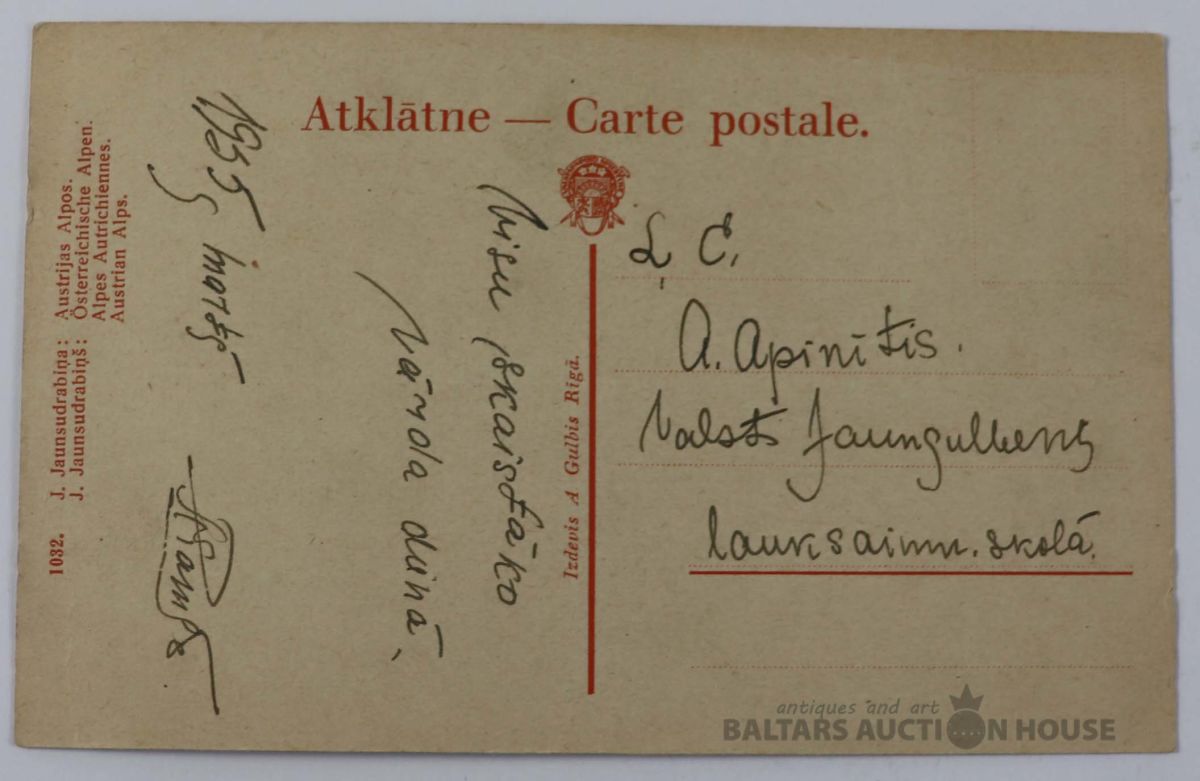 Atklātne — Carte postale.
1032. J. Jaunsudrabiņa: Austrijas Alpos.
J. Jaunsudrabiņš: Österreichische Alpen.
Alpes Autrichiennes.
Austrian Alps.
Visu skaistāko
vārda dienā.
1935 g
Izdevis A Gulbis Rīgā.
Ļ. C.
A. Apinītis.
Valsts Jaungulbenes
lauksaimn. skolā.
antiques and art
BALTARS AUCTION HOUSE